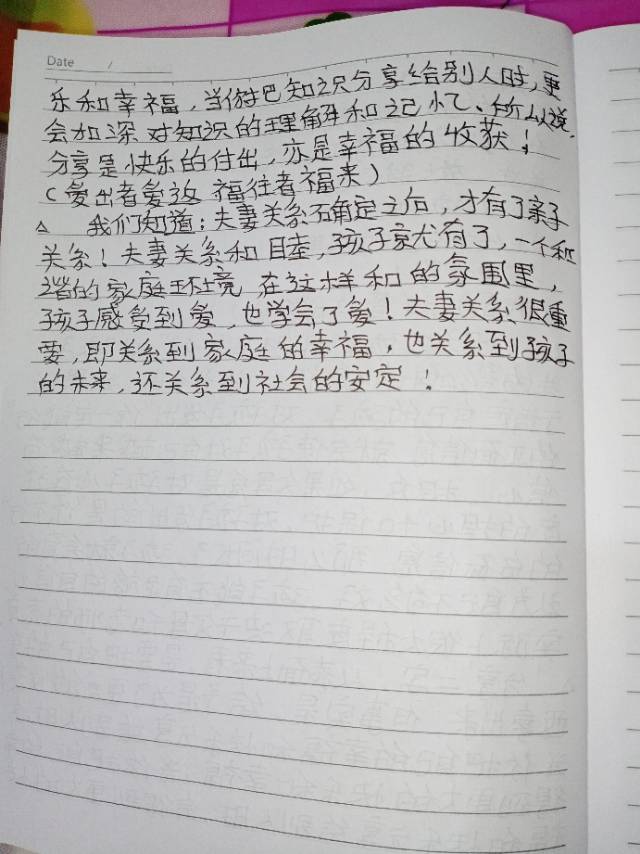 Date /
乐和幸福，当你把知识分享给别人时，更
会加深对知识的理解和记忆、所以说，
分享是快乐的付出，亦是幸福的收获！
（爱出者爱返 福往者福来）
△ 我们知道：夫妻关系确定之后，才有了亲子
关系！夫妻关系和睦，孩子就有了，一个和
谐的家庭环境，在这样和的氛围里，
孩子感受到爱，也学会了爱！夫妻关系很重
要，即关系到家庭的幸福，也关系到孩子
的未来，还关系到社会的安定！